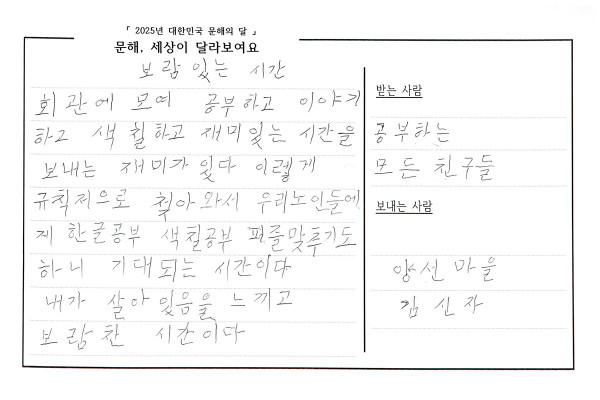 「 2025년 대한민국 문해의 달 」
문해, 세상이 달라보여요
보람 있는 시간
회관에 모여 공부하고 이야기
하고 색칠하고 재미있는 시간을
보내는 재미가 있다 이렇게
규칙적으로 찾아와서 우리노인들에
게 한글공부 색칠공부 퍼즐맞추기도
하니 기대되는 시간이다
내가 살아 있음을 느끼고
보람찬 시간이다
받는 사람
공부하는
모든 친구들
보내는 사람
양선마을
김신자